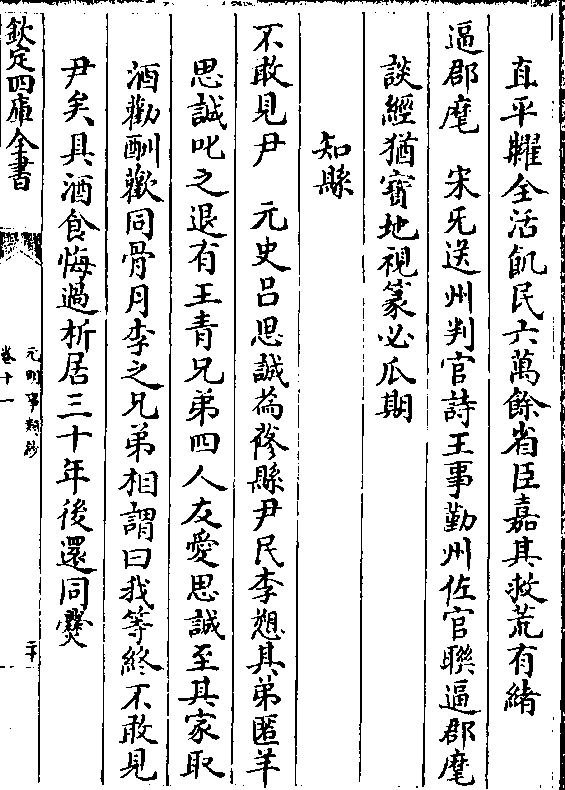 直平糶全活飢民六萬餘省臣嘉其救荒有緒
逼郡麾　宋旡送州判官詩王事勤州佐官聯逼郡麾
談經猶寳地視篆必瓜期
知縣
不敢見尹　元史吕思誠為蓨縣尹民李愬其弟匿羊
思誠叱之退有王青兄弟四人友愛思誠至其家取
酒勸酬歡同骨月李之兄弟相謂曰我等終不敢見
尹矣具酒食悔過析居三十年後還同㸑
欽定四庫全書
元明事類鈔
卷十一
二十